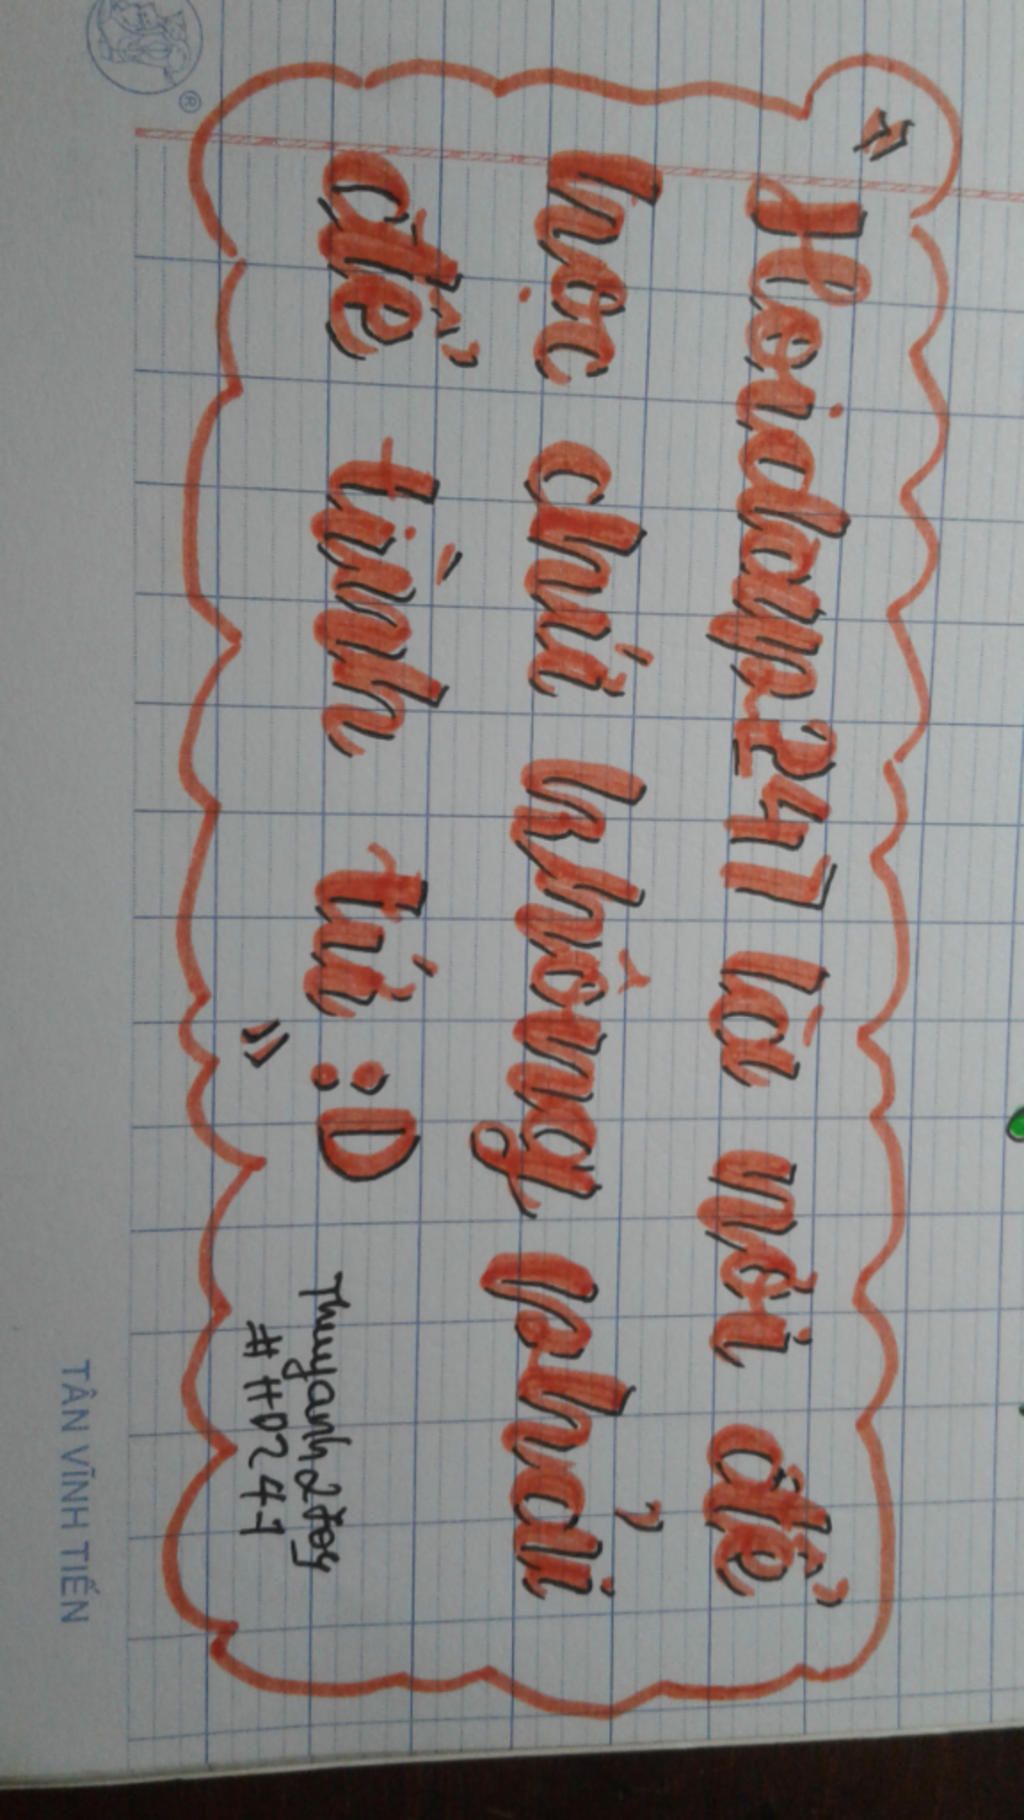 " Hoidap247 là nơi để
học chứ không phải
để tình tứ :D "
Thuyanh2k6y
#HD247
TÂN VĨNH TIẾN
®